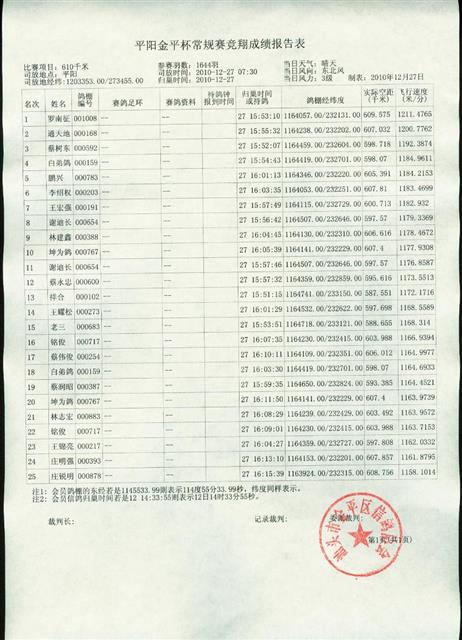 平阳金平杯常规赛竞翔成绩报告表
比赛项目：610千米 参赛羽数：1644羽 当日天气：晴天
司放地点：平阳 司放时间：2010-12-27 07:30 当日风向：东北风
司放地经纬：1203353.00/273455.00 归巢时间： 当日风力：3级 制表：2010年12月27日
名次 姓名 鸽棚编号 赛鸽足环 赛鸽资料 待鸽钟报到时间 归巢时间或待鸽 鸽棚经纬度 实际空距(千米) 飞行速度(米/分)
1 罗南征 001008 -- -- 27 15:53:10 1164057.00/232131.00 609.575 1211.4765
2 通天地 000168 -- -- 27 15:55:32 1164238.00/232202.00 607.032 1200.7762
3 蔡树东 000592 -- -- 27 15:52:07 1164459.00/232604.00 598.718 1192.3874
4 白弟鸽 000159 -- -- 27 15:54:43 1164419.00/232701.00 598.07 1184.9611
5 鹏兴 000783 -- -- 27 16:01:13 1164346.00/232220.00 605.391 1184.2153
6 李绍权 000203 -- -- 27 16:03:35 1164053.00/232251.00 607.81 1183.4699
7 王宏强 000191 -- -- 27 15:57:09 1164115.00/232729.00 600.713 1182.932
8 谢迪长 000654 -- -- 27 15:56:42 1164507.00/232646.00 597.57 1179.3369
9 林建鑫 000388 -- -- 27 16:04:45 1164130.00/232310.00 606.616 1178.4672
10 坤为鸽 000767 -- -- 27 16:05:39 1164141.00/232229.00 607.4 1177.9308
11 谢迪长 000654 -- -- 27 15:57:46 1164507.00/232646.00 597.57 1176.8587
12 蔡永忠 000600 -- -- 27 15:57:32 1164359.00/232859.00 595.616 1173.5513
13 祥合 000102 -- -- 27 15:51:15 1164741.00/233150.00 587.551 1172.1716
14 王耀松 000273 -- -- 27 16:01:29 1164532.00/232622.00 597.698 1168.5589
15 老三 000683 -- -- 27 15:53:51 1164718.00/233121.00 588.655 1168.314
16 铭俊 000717 -- -- 27 16:07:35 1164230.00/232415.00 603.988 1166.9394
17 蔡伟俊 000254 -- -- 27 16:10:11 1164109.00/232351.00 606.012 1164.9977
18 白弟鸽 000159 -- -- 27 16:03:30 1164419.00/232701.00 598.07 1164.6933
19 蔡润昭 000387 -- -- 27 15:59:35 1164650.00/232824.00 593.385 1164.4521
20 坤为鸽 000767 -- -- 27 16:11:50 1164141.00/232229.00 607.4 1163.9739
21 林志宏 000883 -- -- 27 16:08:29 1164239.00/232429.00 603.492 1163.9572
22 铭俊 000717 -- -- 27 16:09:01 1164230.00/232415.00 603.988 1163.7153
23 王锦亮 000217 -- -- 27 16:04:27 1164359.00/232727.00 597.808 1162.0332
24 庄明强 000393 -- -- 27 16:13:10 1164153.00/232201.00 607.857 1161.8795
25 庄锐明 000878 -- -- 27 16:15:39 1163924.00/232315.00 608.756 1158.1014
注1：会员鸽棚的东经若是1145533.99则表示114度55分33.99秒，纬度同样表示。
注2：会员信鸽归巢时间若是12 14:33:55则表示12日14时33分55秒。
裁判长： 记录裁判： 委派裁判：
汕头市金平区信鸽协会
第1页(共1页)